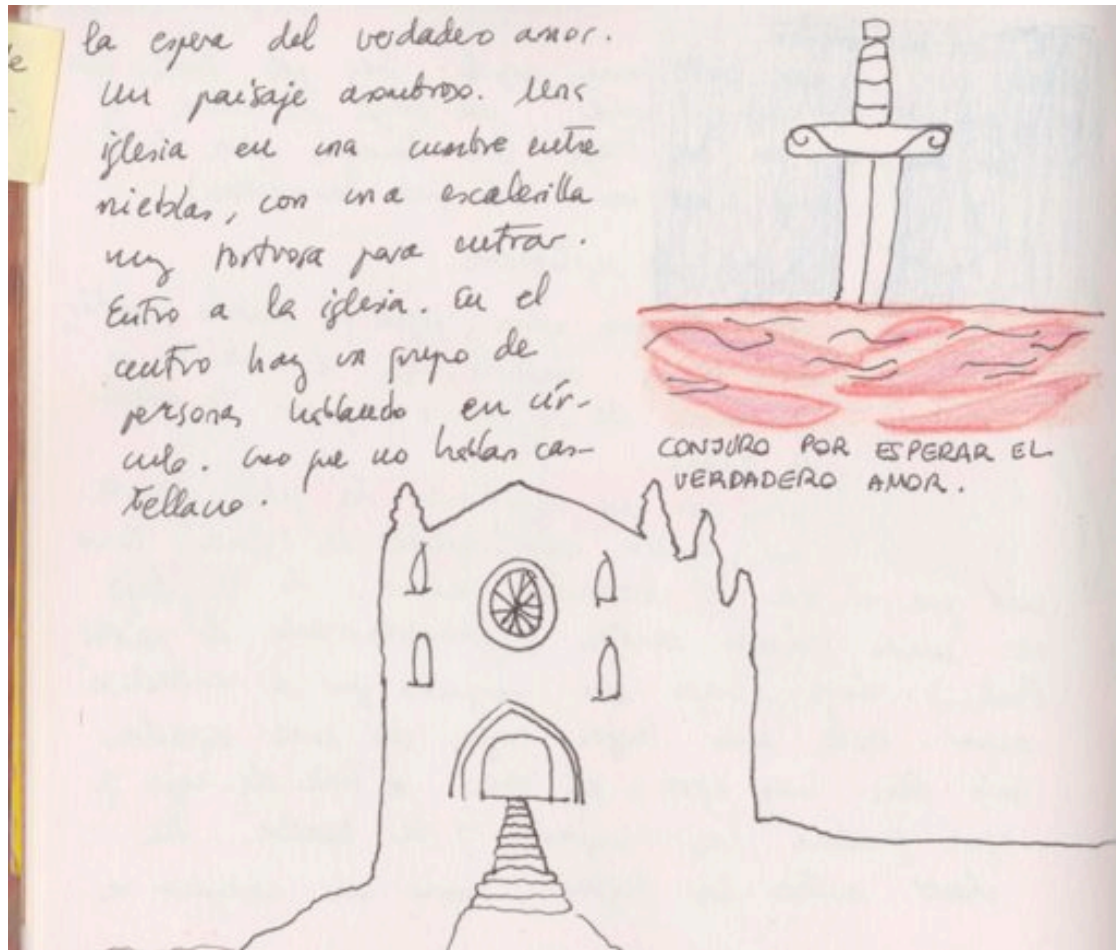 la espera del verdadero amor.
Un paisaje asombroso. Una
iglesia en una cumbre entre
nieblas, con una escalerilla
muy tortuosa para entrar.
Entro a la iglesia. En el
centro hay un grupo de
personas hablando en cír-
culo. Creo que no hablan cas-
tellano.
CONJURO POR ESPERAR EL
VERDADERO AMOR.